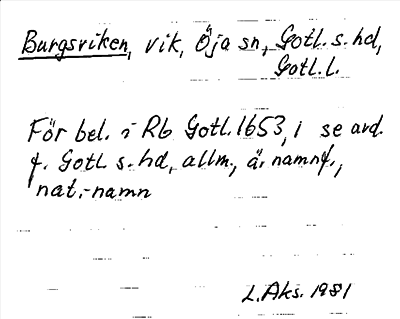 Burgsviken, vik, Öja sn, Gotl. s. hd,
Gotl. l.
För bel. i Rb Gotl. 1653, 1 se avd.
f. Gotl s. hd, allm., ä. namnf.,
nat.-namn
L. Aks. 1981